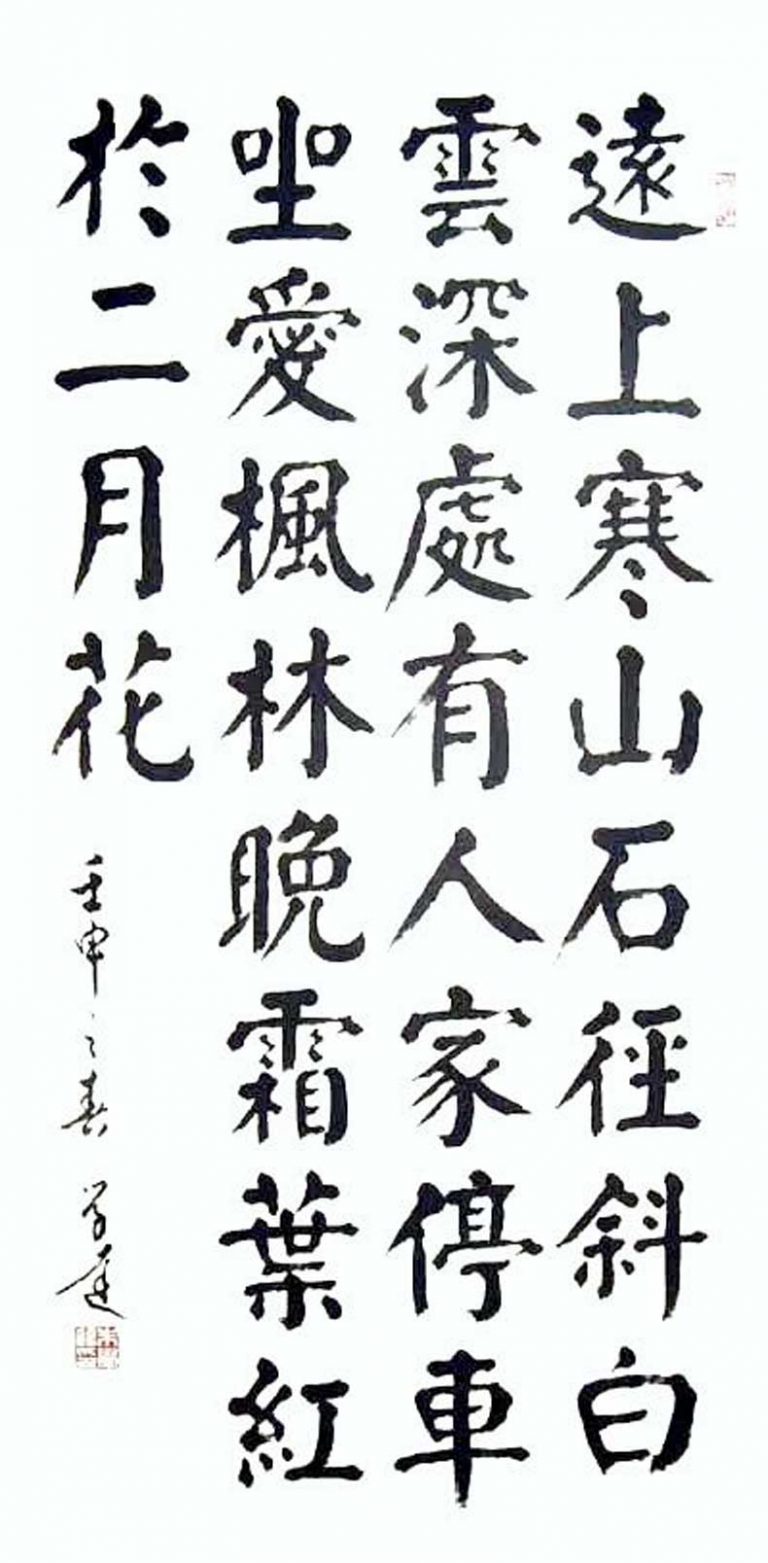 遠上寒山石徑斜白
雲深處有人家停車
坐愛楓林晚霜葉紅
於二月花
壬申之春